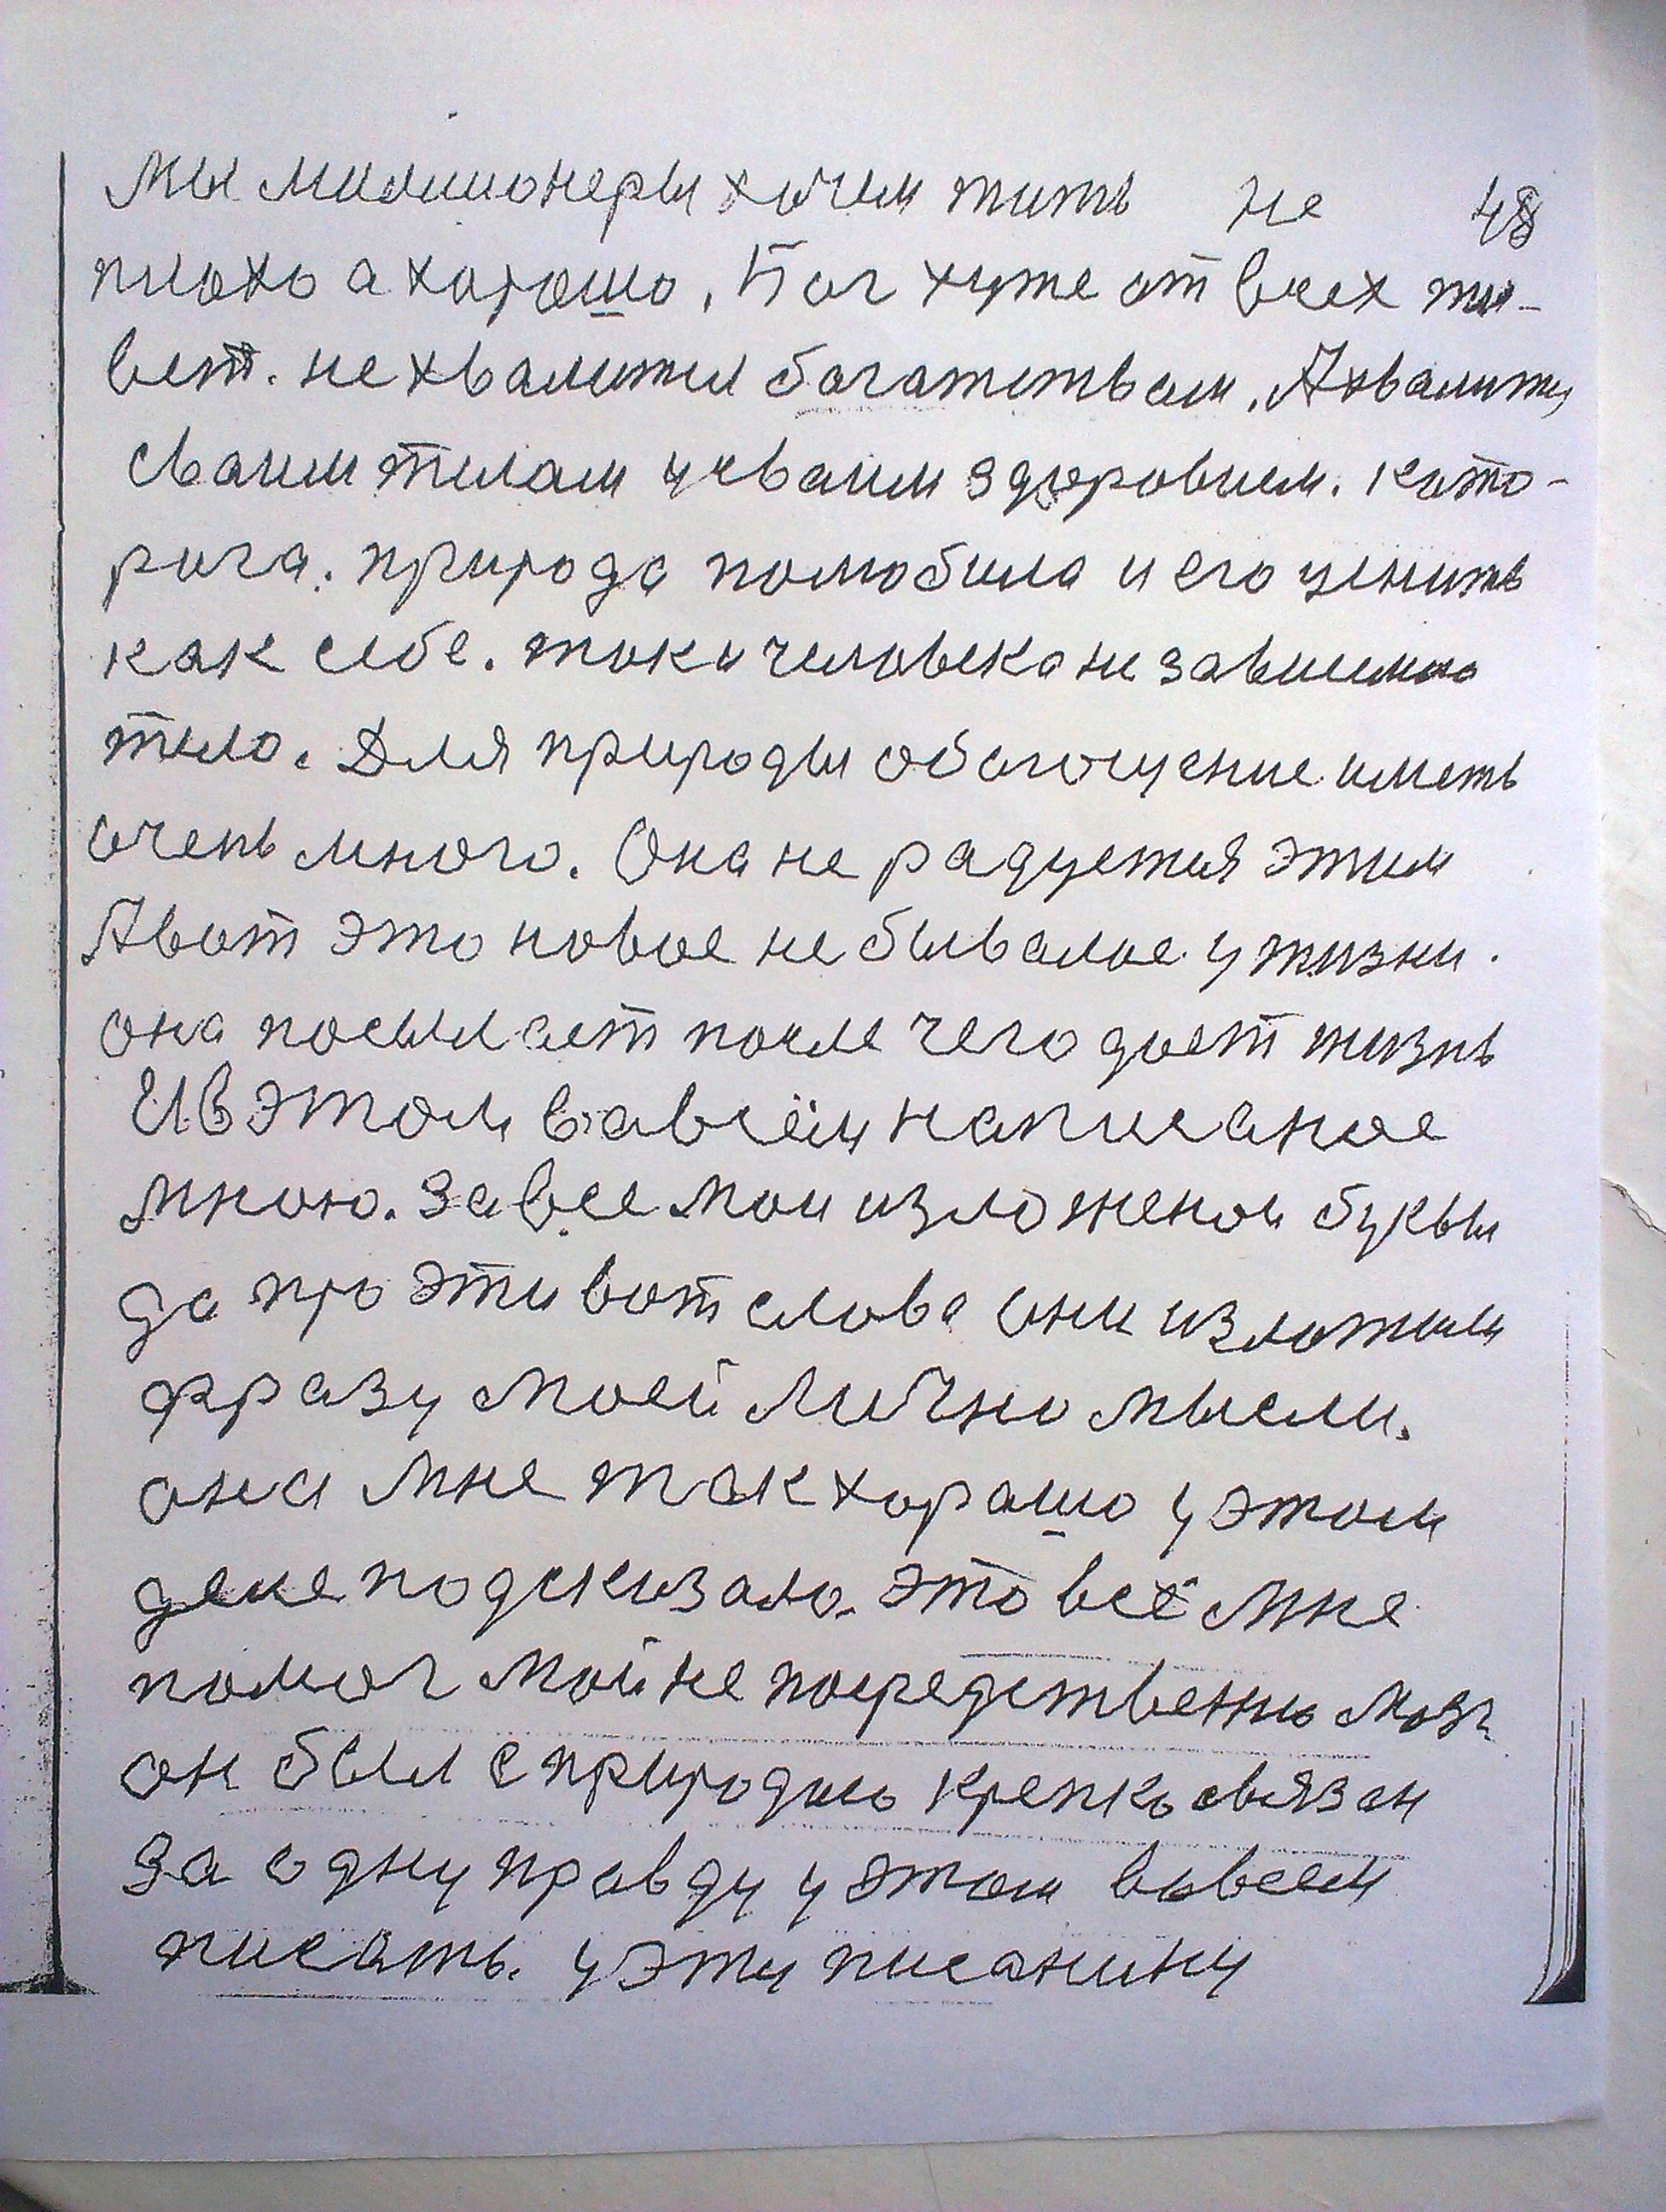 Мы милионеры хочим жить не 48
плохо а харошо. Бог хуже от всех жи-
вет. не хвалитця богатством. А хвалитця
сваим тилам у сваим здоровием. като-
рога. природа полюбила и его ценить
как себе. таки человека не зависимо
тило. Для природы обогощение иметь
очень много. Она не радуется этим
А вот это новое не бывалое у жизни.
она посылает после чего дает жизнь
И в этом ва всём написаное
мною. за все мои изложеном буквы
да про эти вот слова они изложили
фразу моей лично мысли.
она мне так хорашо у этом
деле подсказало. это всё мне
помог мой не посредственно мозг
он был с природою крепко связан
за одну правду у этом вовсем
писать. у эту писанину